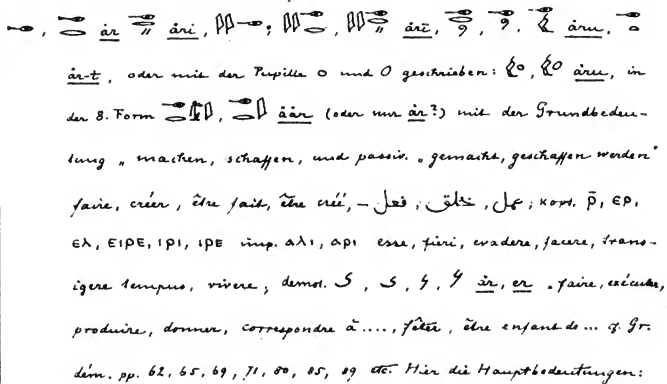 år åri, årī, åru,
år-t, oder mit der Pupille o und O geschrieben: åru, in
der 8. Form åår (oder nur år?) mit der Grundbedeu-
tung „machen, schaffen, und passiv. „gemacht, geschaffen werden"
faire, créer, être fait, être créé, – فعل, خلق, عمل; kopt. ⲣ̄, ⲉⲣ,
ⲉⲗ, ⲉⲓⲣⲉ, ⲓⲣⲓ, ⲓⲣⲉ imp. ⲁⲗⲓ, ⲁⲣⲓ esse, fieri, evadere, facere, trans-
igere tempus, vivere; demot. år, er „faire, exécuter,
produire, donner, correspondre à ...., fêter, être enfant de ... cf. Gr.
dém. pp. 62, 65, 69, 71, 80, 85, 89 etc. Hier die Hauptbedeutungen: